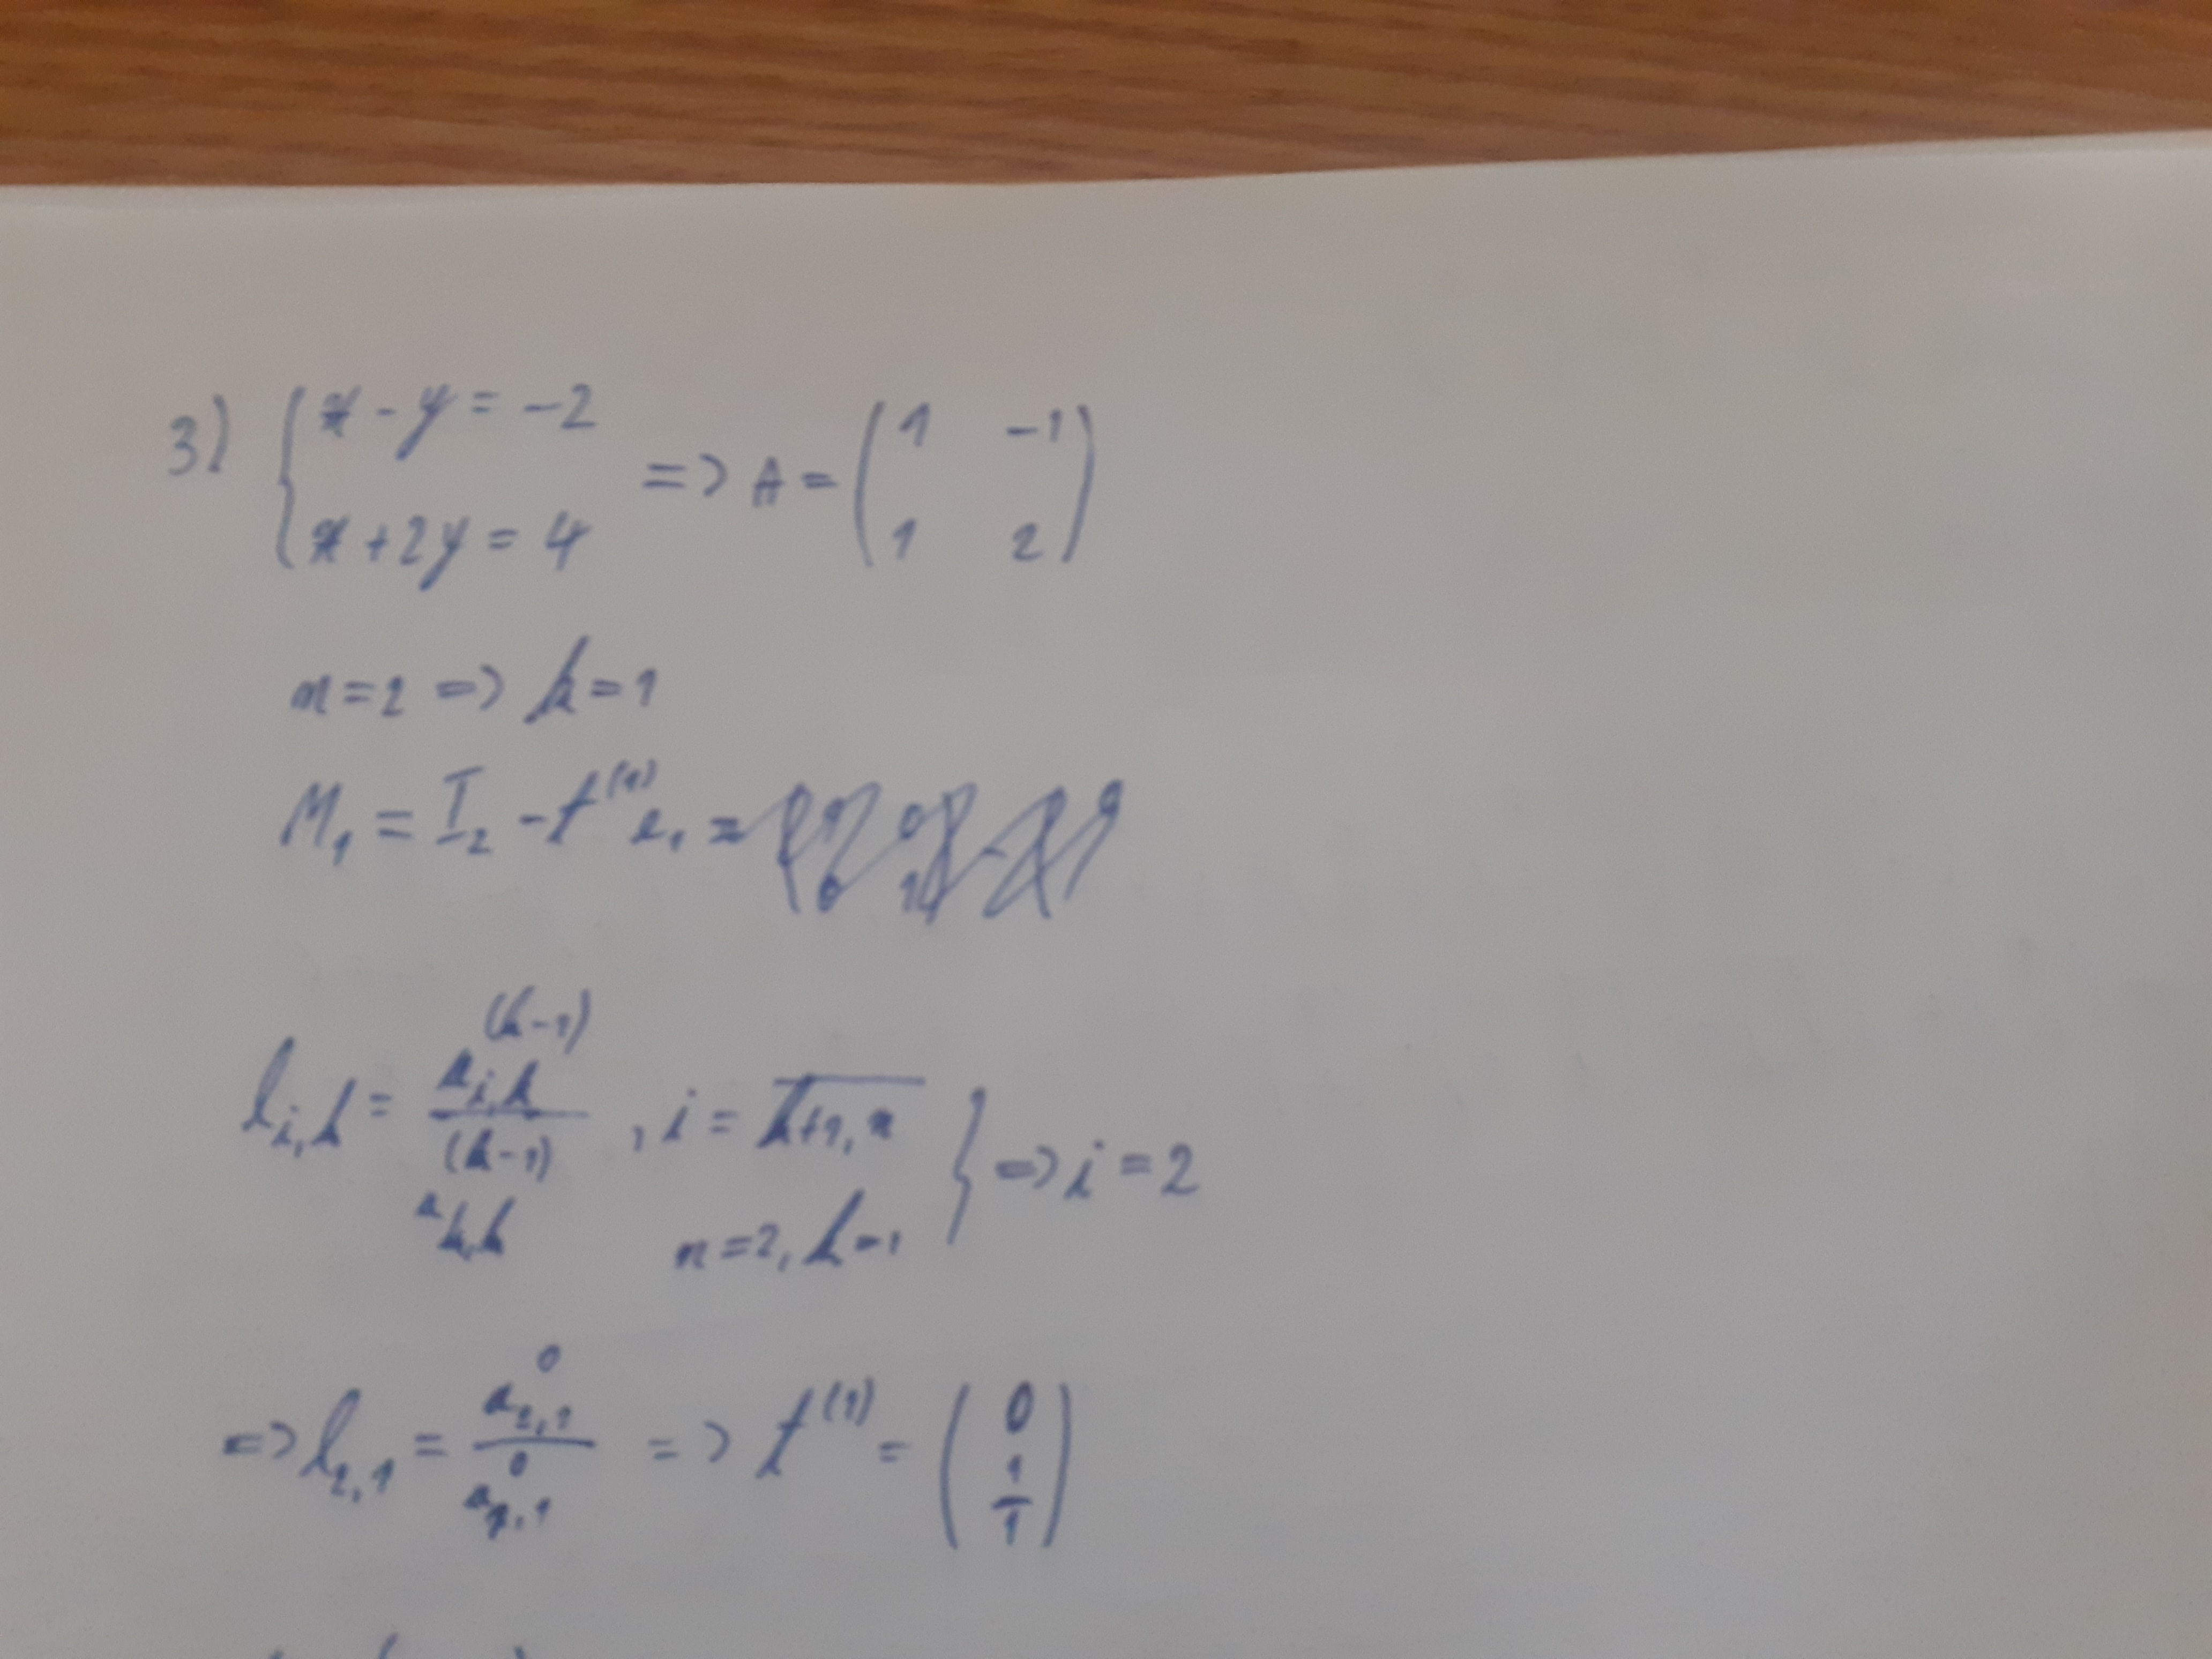 3) { x - y = -2
x + 2y = 4 => A = ( 1 -1
1 2 )
n = 2 => k = 1
M₁ = I₂ - t⁽¹⁾ e₁ =
l_{i,k} = a_{i,k}^{(k-1)} / a_{k,k}^{(k-1)} , i = \overline{k+1, n}
n = 2, k = 1 } => i = 2
=> l_{2,1} = a_{2,1}^{0} / a_{1,1}^{0} => t⁽¹⁾ = ( 0
1/1 )